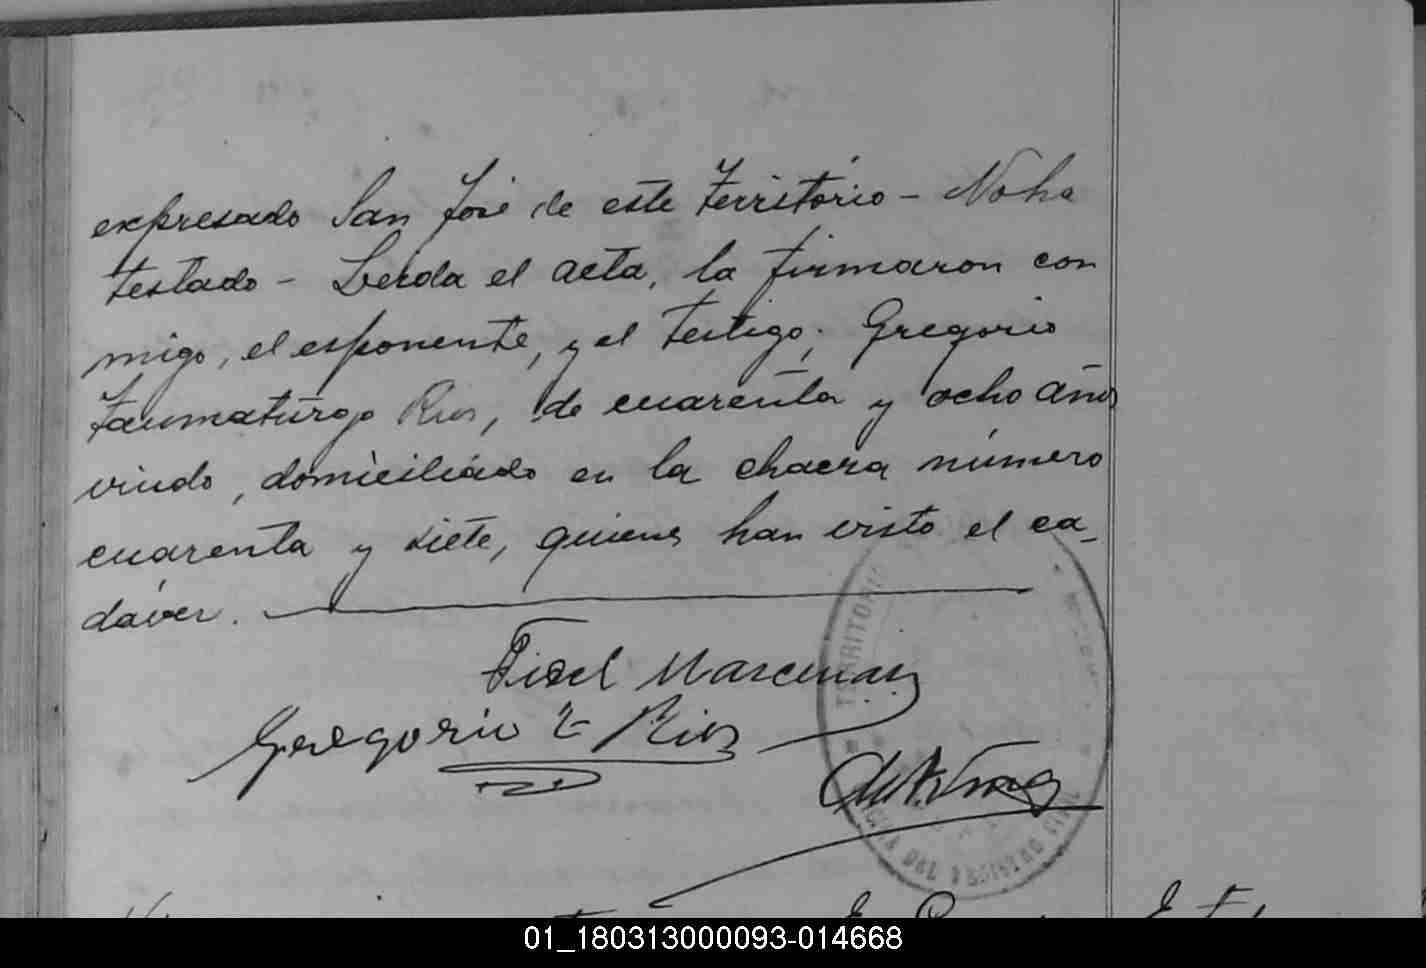 expresado San José de este Territorio - No ha
testado - Leída el acta, la firmaron con
migo, el esponente, y el testigo; Gregorio
Taumaturgo Rios, de cuarenta y ocho años
viudo, domiciliado en la chacra número
cuarenta y siete, quienes han visto el ca-
dáver.
Fidel
Gregorio T Rios
TERRITORIO
DEL REGISTRO CIVIL
01_180313000093-014668